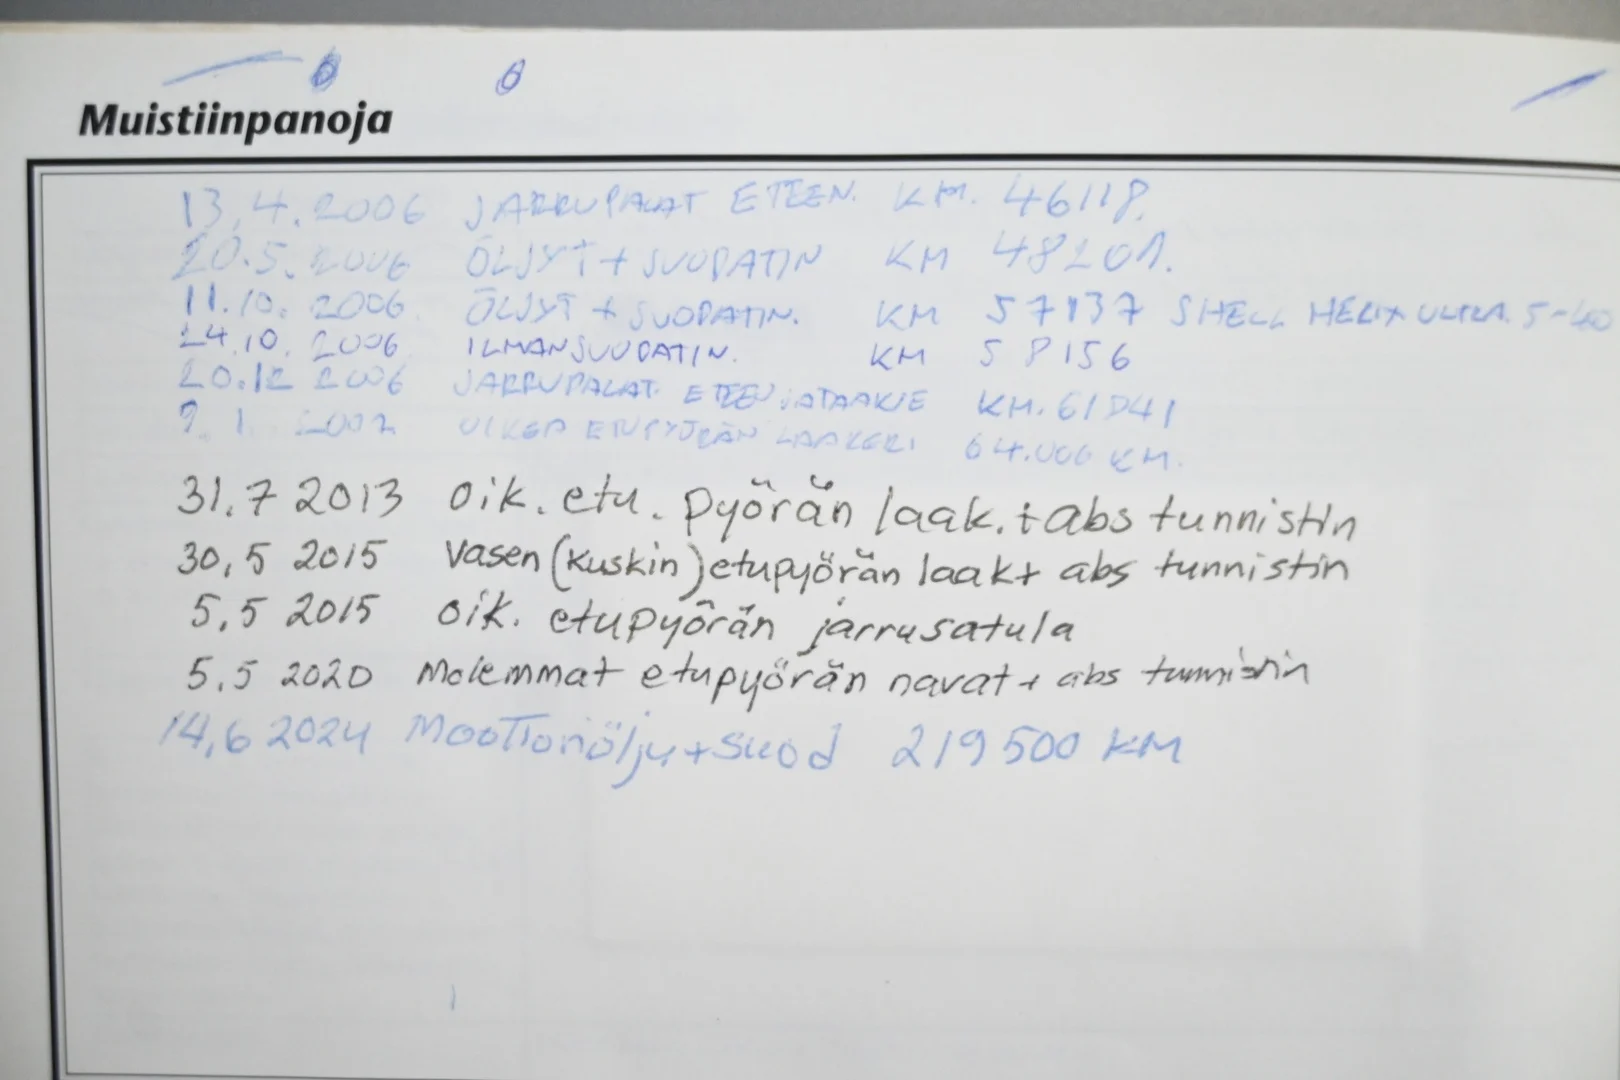 Muistiinpanoja
13.4.2006 JARRUPALAT ETEEN. KM. 46118.
20.5.2006 ÖLJYT + SUODATIN KM 48201.
11.10.2006 ÖLJYT + SUODATIN. KM 57137 SHELL HELIX ULTRA. 5-40
24.10.2006 ILMANSUODATIN. KM 58156
20.12 2006 JARRUPALAT ETEEN JA TAAKSE KM. 61041
1. OIKEA ETUPYÖRÄN LAAKERI 64.006 KM.
31.7 2013 oik. etu. pyörän laak. + abs tunnistin
30,5 2015 Vasen (kuskin) etupyörän laak + abs tunnistin
5,5 2015 oik. etupyörän jarrusatula
5,5 2020 Molemmat etupyörän navat + abs tunnistin
14,6 2024 Moottoriöljy + suod 219500 KM